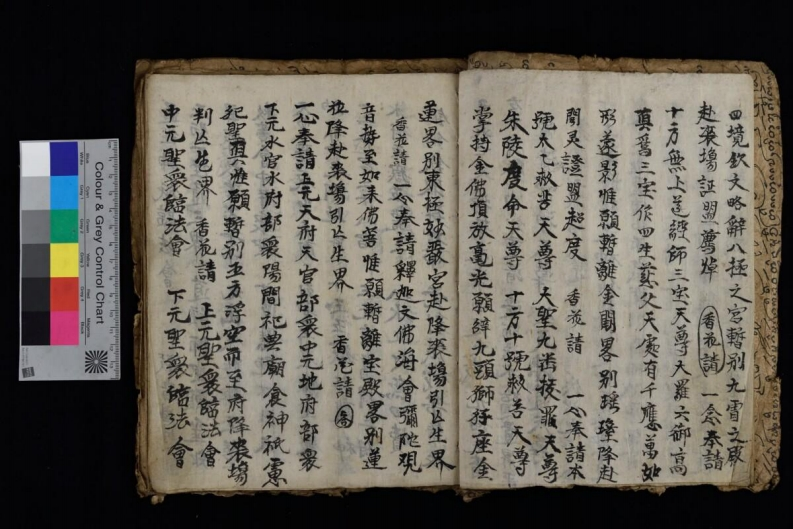 四境欽文略辭八極之宮暫別九霄之殿
赴裘塲証盟薦焯 香花請 一念奉請
十方無上道設師三宝天尊大羅六御高
真爲三宝作四生慈父天處有千應萬
形遂影惟願暫離金闕畧別瑶堦降赴
間灵證盟超度 香花請 一心奉請本
號太乙救苦天尊 大聖九天授籙天尊
朱陵度命天尊 十方十號救苦天尊
掌持金 頂放毫光願 九頭獅 座金
蓮畧別東極妙嚴宮赴降裘塲引亾生界
香花請 一心奉請釋迦文佛海會彌陀观
音势至如来 惟願暫離宝殿畧別蓮
並降赴裘塲引亾生界 香花請
一心奉請上元天府天官部衆中元地府部衆
下元水官水府部衆陽間祀典廟食神祇
祀聖真惟願暫別五方浮空而至府降裘塲
判亾生界 香花請 上元聖衆臨法會
中元聖衆臨法會 下元聖衆臨法會
Colour & Grey Control Chart